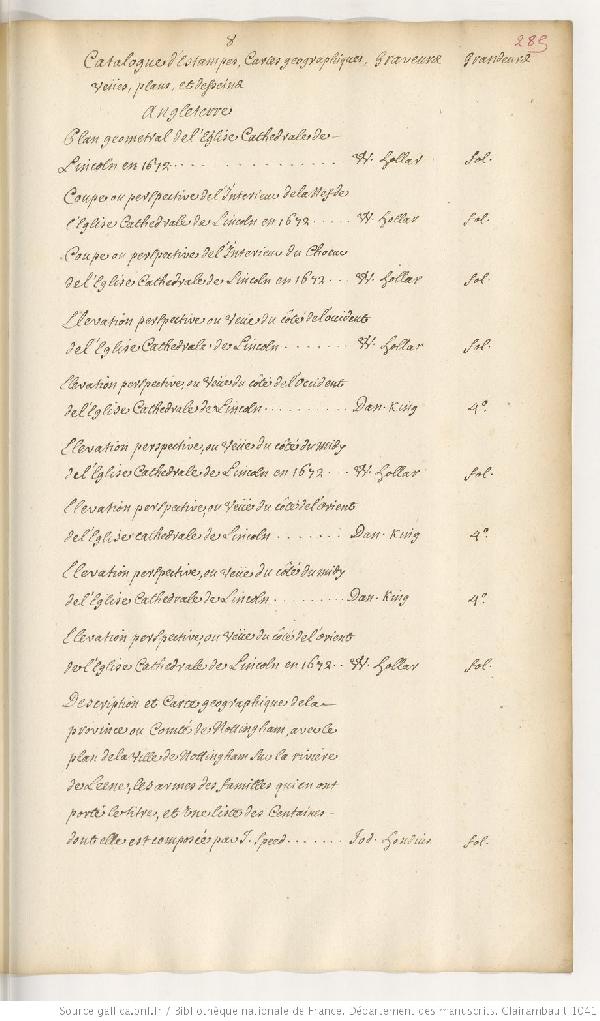 8
285
Catalogue d'Estampes, Cartes geographiques, Graveurs Grandeurs
veües, plans, et desseins
Angleterre
Plan geometral de l'Eglise Cathedrale de
Lincoln en 1672 . . . . . . . . . . W. Hollar fol.
Coupe ou perspective de l'Interieur de la Nef de
l'Eglise Cathedrale de Lincoln en 1672 . . . . . W. Hollar fol.
Coupe ou perspective de l'Interieur du Choeur
de l'Eglise Cathedrale de Lincoln en 1672 . . . W. Hollar fol.
Elevation perspective ou Veüe du côté de l'occident
de l'Eglise Cathedrale de Lincoln . . . . . . . W. Hollar fol.
Elevation perspective, ou Veüe du côté de l'Occident
de l'Eglise Cathedrale de Lincoln . . . . . . . . . Dan. King 4°.
Elevation perspective, ou Veüe du côté du midy
de l'Eglise Cathedrale de Lincoln en 1672 . . W. Hollar fol.
Elevation perspective, ou Veüe du côté de l'Orient
de l'Eglise cathedrale de Lincoln . . . . . . . Dan. King 4°.
Elevation perspective, ou Veüe du côté du midy
de l'Eglise Cathedrale de Lincoln . . . . . . . . . Dan. King 4°.
Elevation perspective, ou Veüe du côté de l'orient
de l'Eglise Cathedrale de Lincoln en 1672 . . W. Hollar fol.
Description et Carte geographique de la
province ou Comté de Nottingham, avec le
plan de la Ville de Nottingham sur la riviere
de Leene, les armes des familles qui en ont
porté le titre, et Une liste des Centaines
dont elle est composée par J. Speed . . . . . . . Jod. Hondius fol.
Source gallica.bnf.fr / Bibliothèque nationale de France. Département des manuscrits. Clairambault 1041